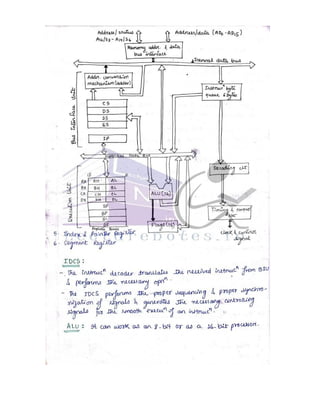 Address/status
A16/S3 - A19/S6
Address/data (AD0 - AD15)
Memory addr. & data
bus interface
Internal data bus
Bus Interface Unit
Addr. conversion
mechanism
Instrucⁿ byte
queue 6 bytes
CS
DS
SS
ES
IP
Decoding ckt
Execution Unit
AH AL
BH BL
CH CL
DH DL
SP
BP
SI
DI
ALU (16)
Flags (16)
Timing & control
clock & control
signals
5. Index & Pointer Register.
6. Segment Register
IDCS :
- The instrucⁿ decoder translates the received instrucⁿ from BIU
& performs the necessary opnⁿ
- The IDCS performs the proper sequencing & proper synchro-
nization of signals & generates the necessary controlling
signals for the smooth execuⁿ of an instrucⁿ.
ALU : It can work as an 8-bit or as a 16-bit processor.